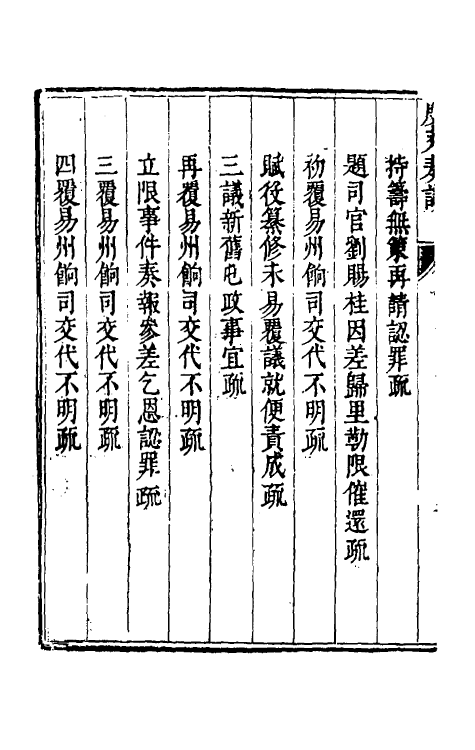 持籌無策再請認罪疏
題司官劉賜桂因差歸里勒限催還疏
初覆易州餉司交代不明疏
賦役纂修未易覆議就便責成疏
三議新舊屯政事宜疏
再覆易州餉司交代不明疏
立限事件奏報參差乞恩認罪疏
三覆易州餉司交代不明疏
四覆易州餉司交代不明疏